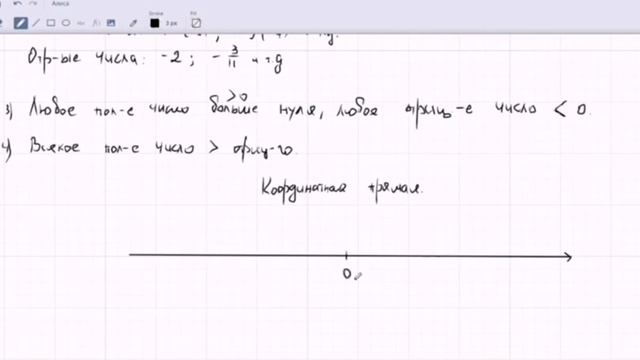 Алиса
3 px
Fill
Отр-ые числа: -2; - 3/11 и т д
3) Любое пол-е число больше нуля, любое отриц-е число < 0.
>0
4) Всякое пол-е число > отриц-го.
Координатная прямая.
0